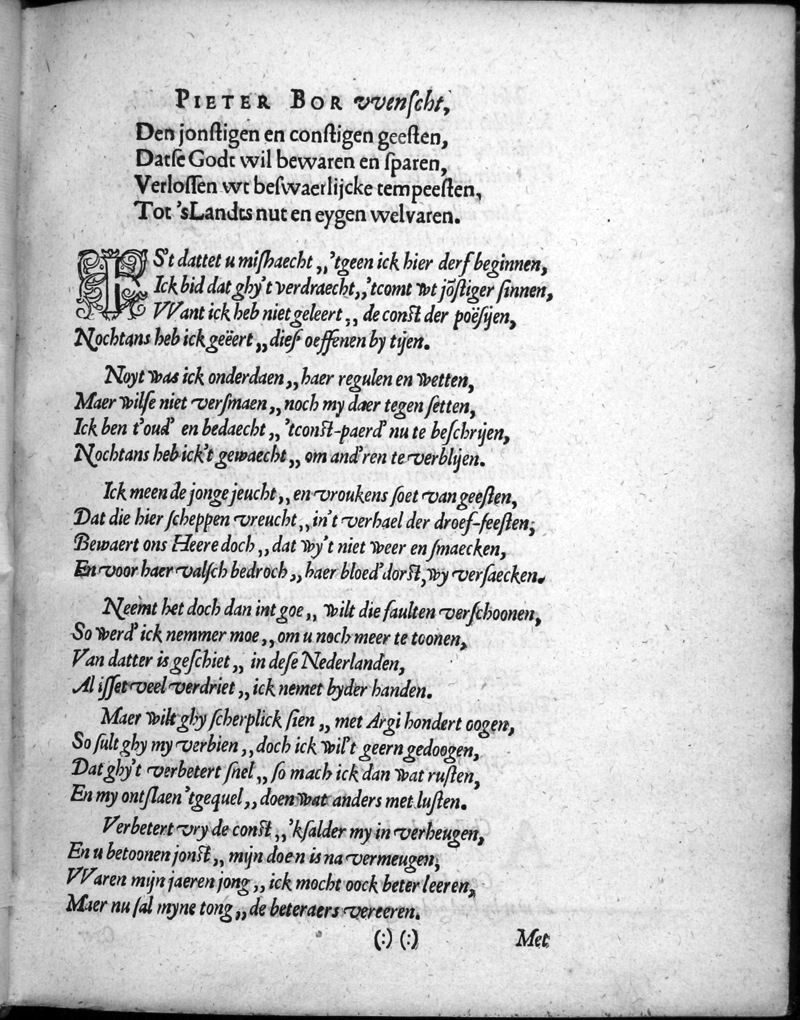 PIETER BOR vvenscht,
Den jonstigen en constigen geesten,
Datse Godt wil bewaren en sparen,
Verlossen wt beswaerlijcke tempeesten,
Tot 'sLandts nut en eygen welvaren.
IS't dattet u mishaecht „ 'tgeen ick hier derf beginnen,
Ick bid dat ghy't verdraecht „ 'tcomt wt jōstiger sinnen,
VVant ick heb niet geleert „ de const der poësijen,
Nochtans heb ick geëert „ dies oeffenen by tijen.
Noyt was ick onderdaen „ haer regulen en wetten,
Maer wilse niet versmaen „ noch my daer tegen setten,
Ick ben t'oud' en bedaecht „ 'tconst-paerd' nu te beschrijen,
Nochtans heb ick't gewaecht „ om and'ren te verblijen.
Ick meen de jonge jeucht „ en vroukens soet van geesten,
Dat die hier scheppen vreucht „ in't verhael der droef-feesten;
Bewaert ons Heere doch „ dat wy't niet weer en smaecken,
En voor haer valsch bedroch „ haer bloed'dorst, wy versaecken.
Neemt het doch dan int goe „ wilt die faulten verschoonen,
So werd' ick nemmer moe „ om u noch meer te toonen,
Van datter is geschiet „ in dese Nederlanden,
Al isset veel verdriet „ ick nemet byder handen.
Maer wilt ghy scherplick sien „ met Argi hondert oogen,
So sult ghy my verbien „ doch ick wil't geern gedoogen,
Dat ghy't verbetert snel „ so mach ick dan wat rusten,
En my ontslaen 'tgequel „ doen wat anders met lusten.
Verbetert vry de const „ 'ksalder my in verheugen,
En u betoonen jonst „ mijn doen is na vermeugen,
VVaren mijn jaeren jong „ ick mocht oock beter leeren,
Maer nu sal myne tong „ de beteraers vereeren.
(:) (:) Met